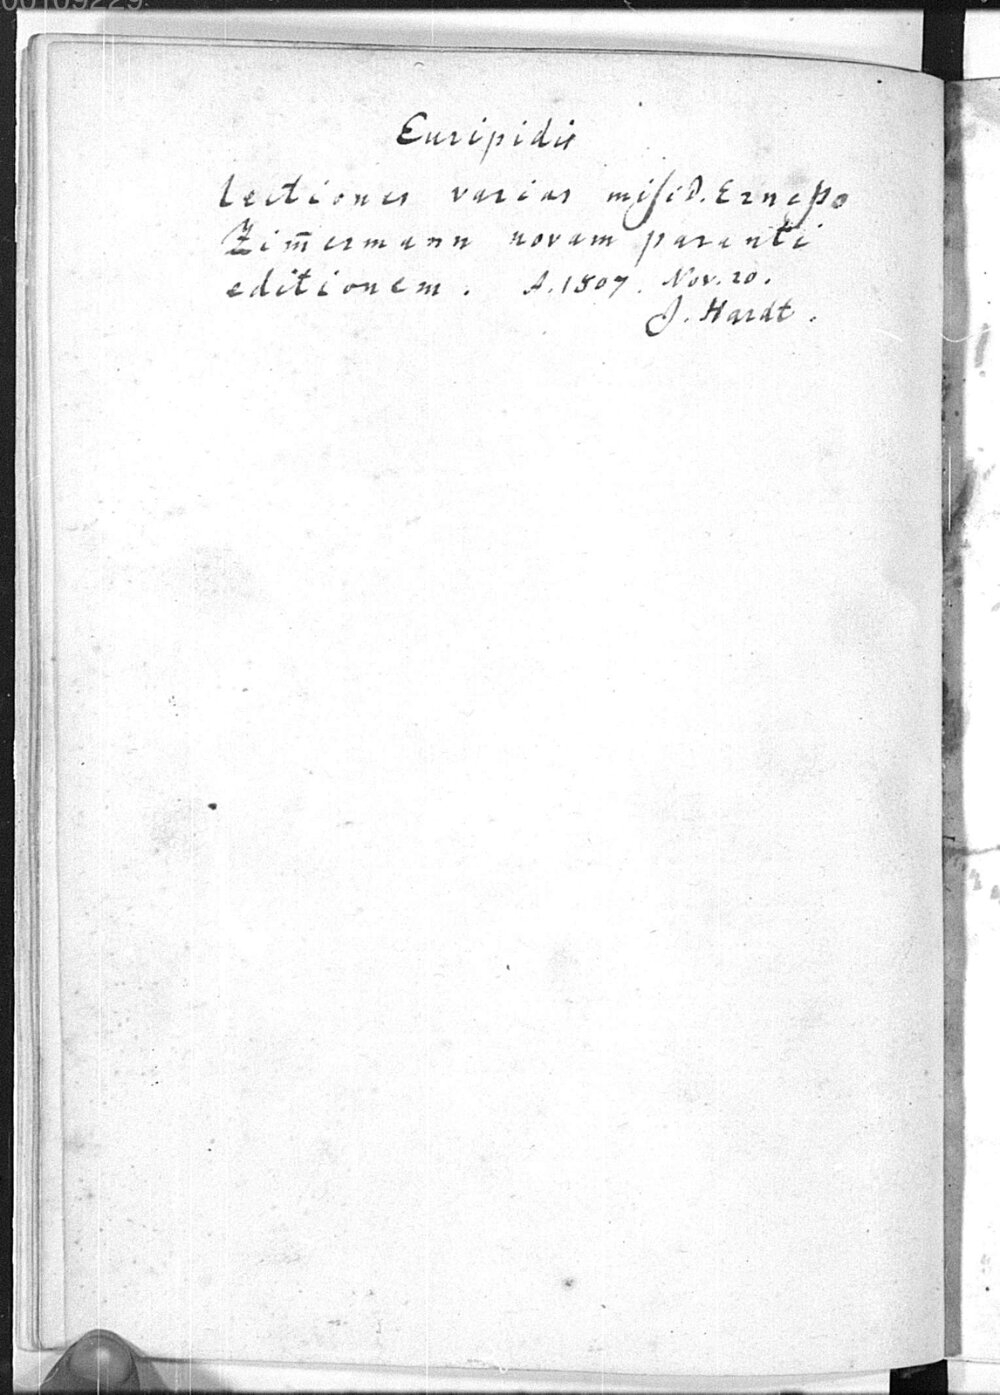 00109229
Euripidis
lectiones varias misi D. Ernesto
Zim̄ermann novam paranti
editionem. A. 1807. Nov. 20.
J. Hardt.